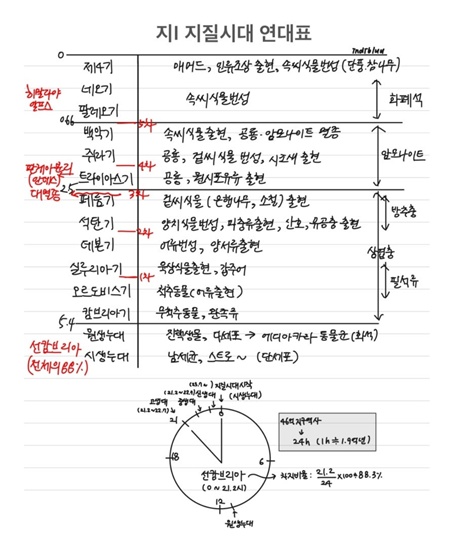 지I 지질시대 연대표
0
제4기 매머드, 인류조상 출현, 속씨식물번성 (단풍.참나무)
네오기
팔레오기
속씨식물번성
화폐석
히말라야
알프스
0.66
5차
백악기 속씨식물 출현, 공룡·암모나이트 멸종
쥐라기 공룡, 겉씨식물 번성, 시조새 출현
4차
트라이아스기 공룡, 원시포유류 출현
암모나이트
판게아 분리
대멸종
2.5
3차
페름기 겉씨식물 (은행나무, 소철) 출현
석탄기 양치식물번성, 파충류출현, 산호, 유공충 출현
2차
데본기 어류번성, 양서류출현
방추충
삼엽충
실루리아기 육상식물출현, 갑주어
1차
오르도비스기 척추동물 (어류출현)
필석류
캄브리아기 무척추동물, 완족류
5.4
원생누대 진핵생물, 다세포 → 에디아카라 동물군 (화석)
시생누대 남세균, 스트로~ (단세포)
선캄브리아
(전체의 88%)
지질시대시작
(시생누대)
신생대
중생대
고생대
(21.2~22.7)
0
21
18
6
12
선캄브리아
(0~21.2시)
원생누대
46억 지구역사
↓
24h (1h≒1.9억년)
→ 차지비율: 21.2/24 ×100≒88.3%